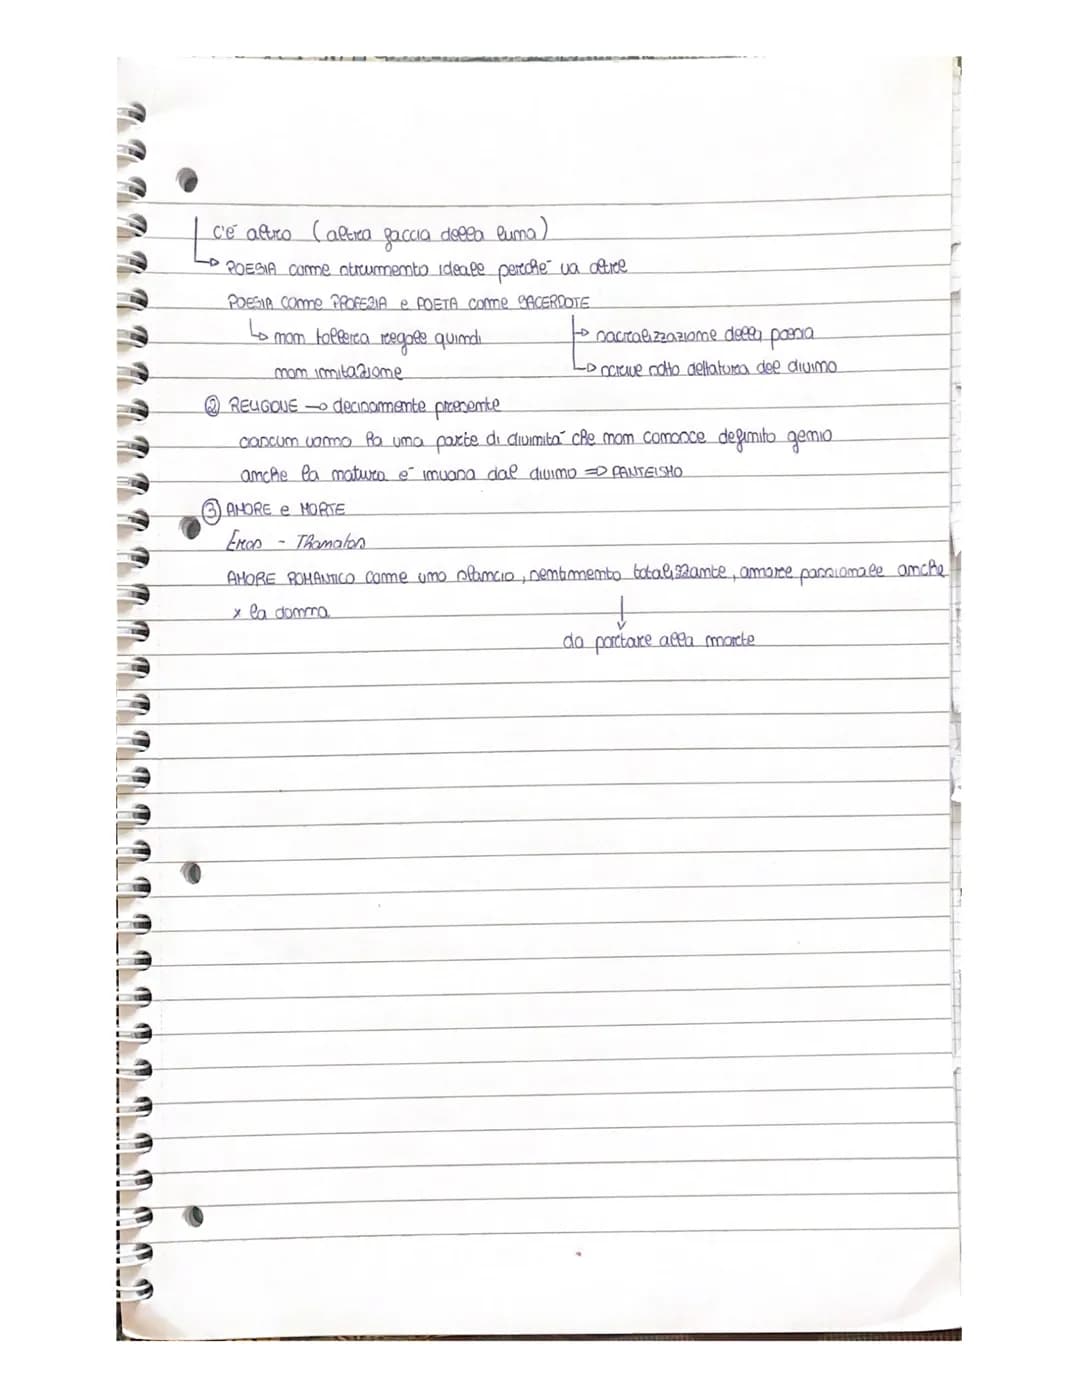 c'è altro (altra faccia della luna)
↳ POESIA come strumento ideale perché va oltre
POESIA come PROFEZIA e POETA come SACERDOTE
↳ non tollera regole quindi → sacralizzazione della poesia
non imitazione ↳ scrive sotto dettatura del divino
② RELIGONE → decisamente presente
ciascun uomo ha una parte di divinità che non conosce definito genio
anche la natura è invasa dal divino => PANTEISMO
③ AMORE e MORTE
Eros - Thanatos
AMORE ROMANTICO come uno slancio, sentimento totalizzante, amore passionale anche
x la donna ↓
da portare alla morte